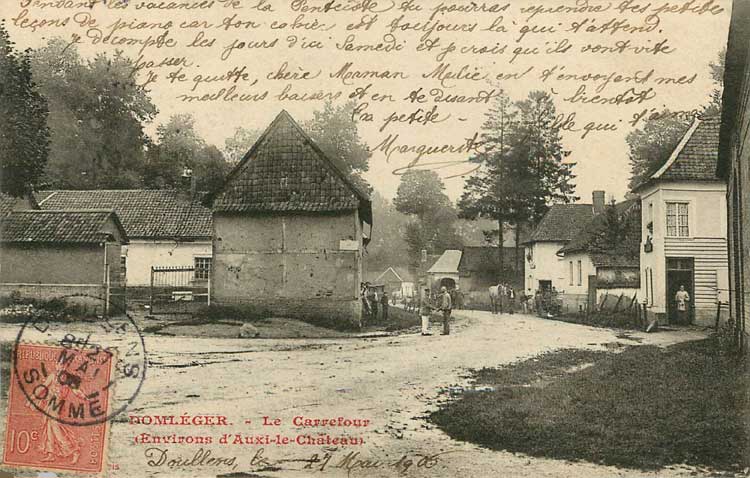 Pendant les vacances de la Pentecôte tu pourras reprendre tes petites
leçons de piano car ton cahier est toujours là qui t'attend.
Je décompte les jours d'ici Samedi et je crois qu'ils vont vite
passer.
Je te quitte, chère Maman Mélie en t'envoyant mes
meilleurs baisers et en te disant à bientôt
ta petite - elle qui t'aime
Marguerite
DOMLÉGER. - Le Carrefour
(Environs d'Auxi-le-Château)
Doullens, le 27 Mai 190
RÉPUBLIQUE
10c
MAI
SOMME